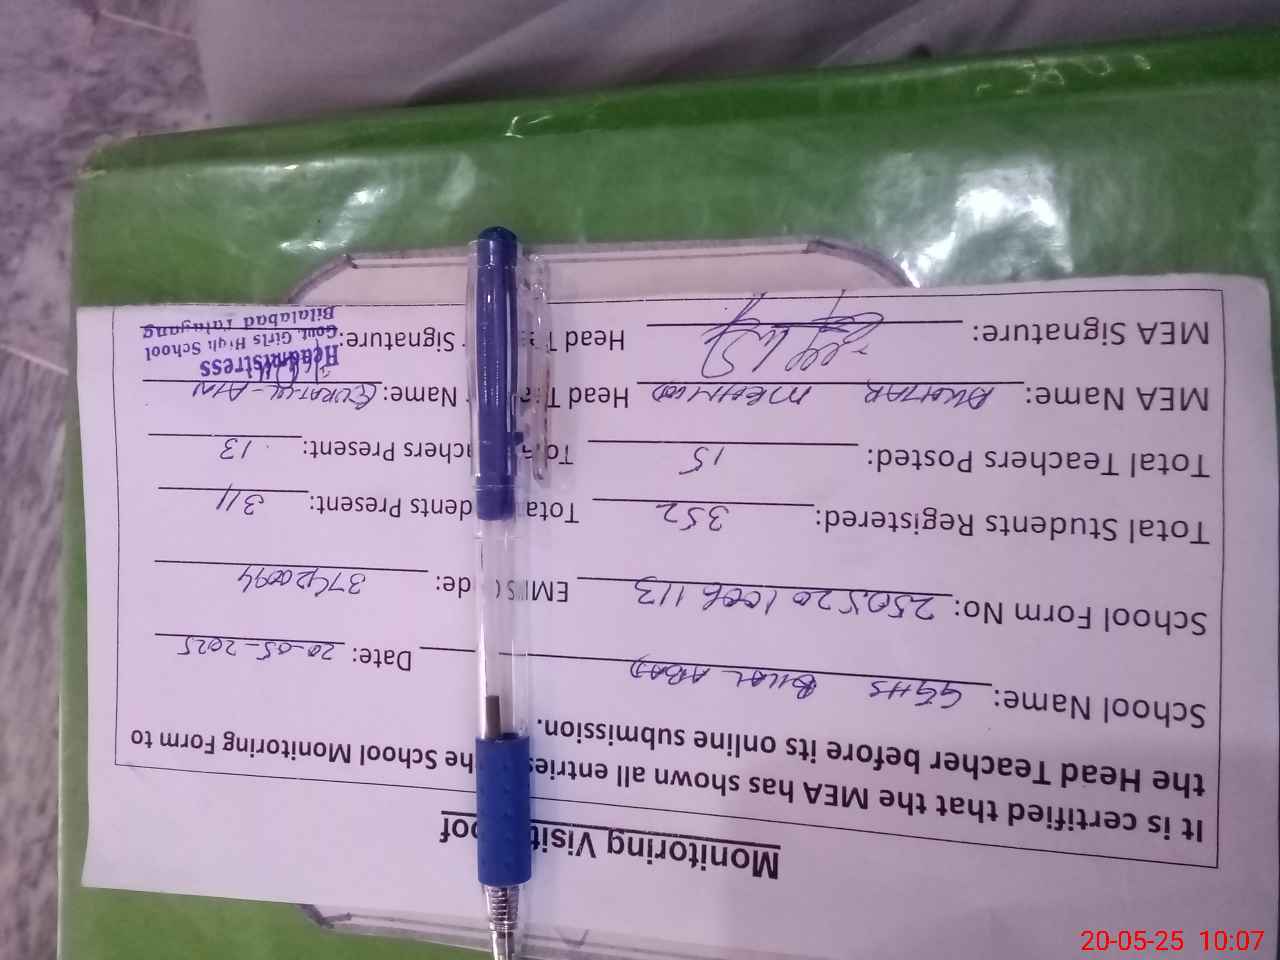 Monitoring Visit Proof
It is certified that the MEA has shown all entries the School Monitoring Form to
the Head Teacher before its online submission.
School Name: GGHS BILAL ABAD Date: 20-05-2025
School Form No: 2505201006113 EMIS de: 37420094
Total Students Registered: 352 Total dents Present: 311
Total Teachers Posted: 15 Tot chers Present: 13
MEA Name: AKHTAR MEHMOOD Head T Name: QURAT-UL-AIN
MEA Signature: Head T Signature:
Headmistress
Govt. Girls High School
Bilalabad Talagang
20-05-25 10:07